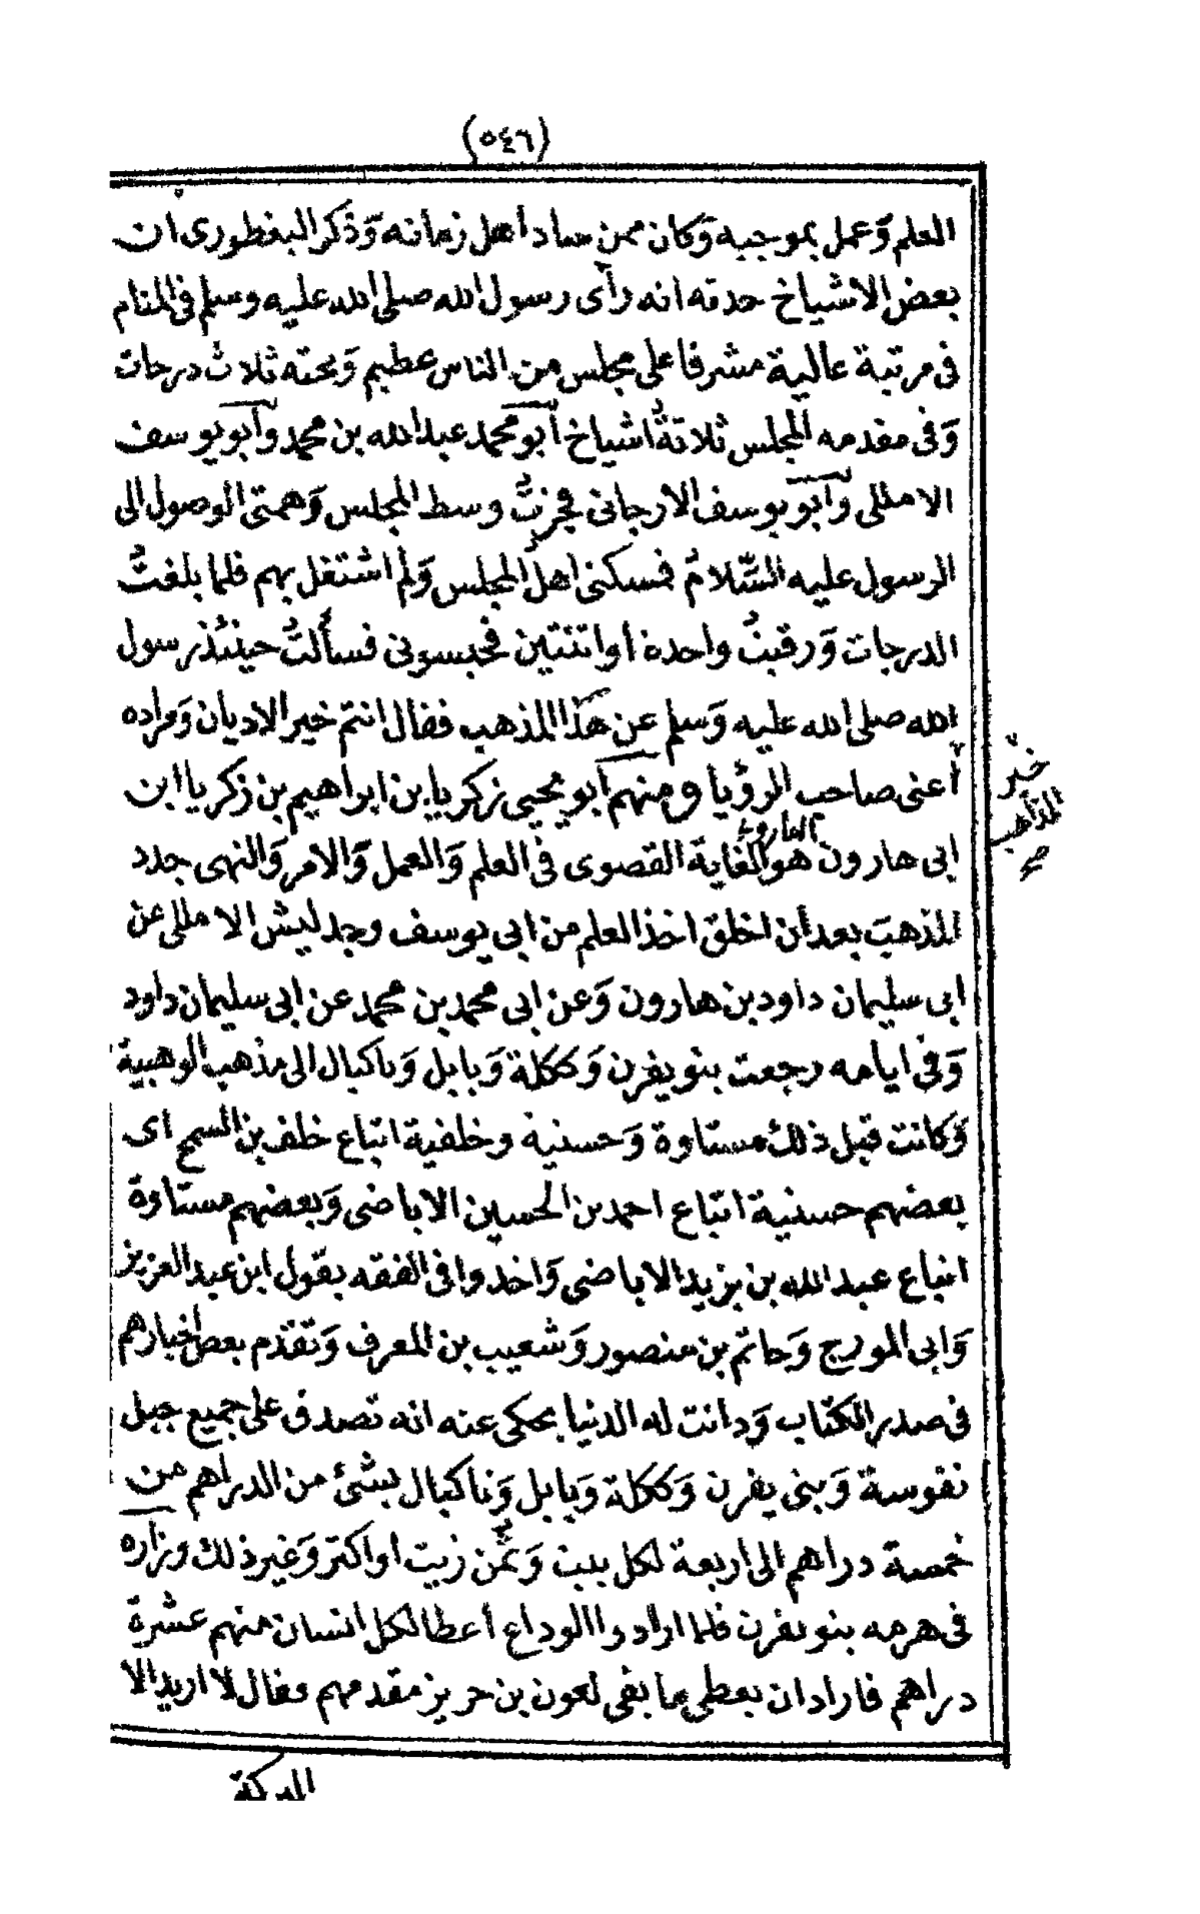 (٥٤٦)
العلم وَعمل بموجبه وَكان ممن ساد أهل زمانه وَذكر البغطورى ان
بعض الاشياخ حدثه انه رأى رسول الله صلى الله عليه وسلم فى المنام
فى مرتبة عالية مشرفا على مجلس من الناس عظيم وَتحته ثلاث درجات
وَفى مقدمه المجلس ثلاثةُ اشياخ أبو محمد عبد الله بن محمد وأبو يوسف
الامللى وأبو يوسف الارجانى فجزتُ وسط المجلس وَهمتى الوصول الى
الرسول عليه السّلامُ فمسكنى اهلُ المجلس وَلم اشتغل بهم فلما بلغتُ
الدرجات وَرقيتُ واحدة أو اثنتين فحبسونى فسألتُ حينئذ رسول
الله صلى الله عليه وَسلم عن هذا المذهب فقال انتم خير الاديان وَمراده
أعنى صاحب الرؤيا ومنهم أبو يحيى زكرياء بن ابراهيم بن زكريا ابن
ابى هارون الهارونى هو الغاية القصوى فى العلم وَالعمل وَالامر وَالنهى جدد
المذهبَ بعد أن اخلق اخذ العلم من ابى يوسف وجدليش الامللى عن
ابى سليمان داود بن هارون وَعن ابى محمد بن محمد عن ابى سليمان داود
وَفى ايامه رجعت بنو يفرن وَككلة وَيابل وَناكبال الى مذهب الوهبية
وَكانت قبل ذلك مستاوة وَحسنية وخلفية اتباع خلف بن السمح اى
بعضهم حسنية اتباع احمد بن الحسين الاباضى وَبعضهم مستاوة
اتباع عبد الله بن يزيد الاباضى وَاخذوا فى الفقه بقول ابن عبد العزيز
وَابى المورج وَحاتم بن منصور وَشعيب بن المعرف وَتقدم بعض اخبارهم
فى صدر الكتاب وَدانت له الدنيا يحكى عنه انه تصدق على جميع جبل
نفوسة وَبنى يفرن وَككلة وَيابل وَناكبال بشئ من الدراهم من
خمسة دراهم الى اربعة لكل بيت وَثمن زيت أو اكثر وَغير ذلك وزاره
فى هرمه بنو يفرن فلما ارادوا الوداع أعطا لكل انسان منهم عشرة
دراهم فاراد ان يعطى ما بقى لعون بن حريز مقدمهم فقال لا اريد الا
البركة
خيرُ
المذاهب
صح